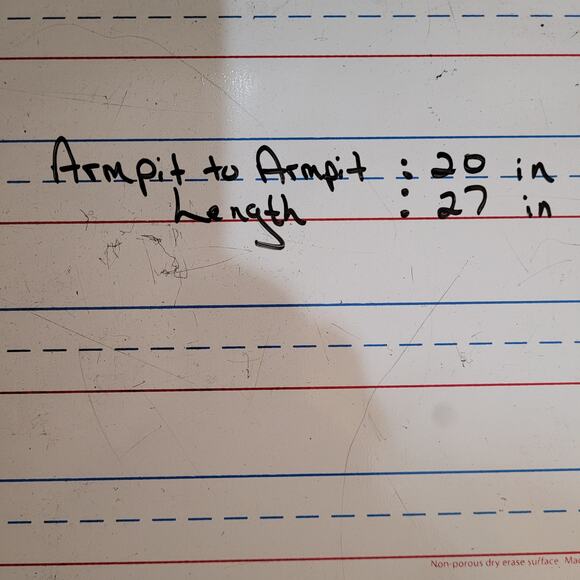 Armpit to Armpit : 20 in
Length : 27 in
Non-porous dry erase surface